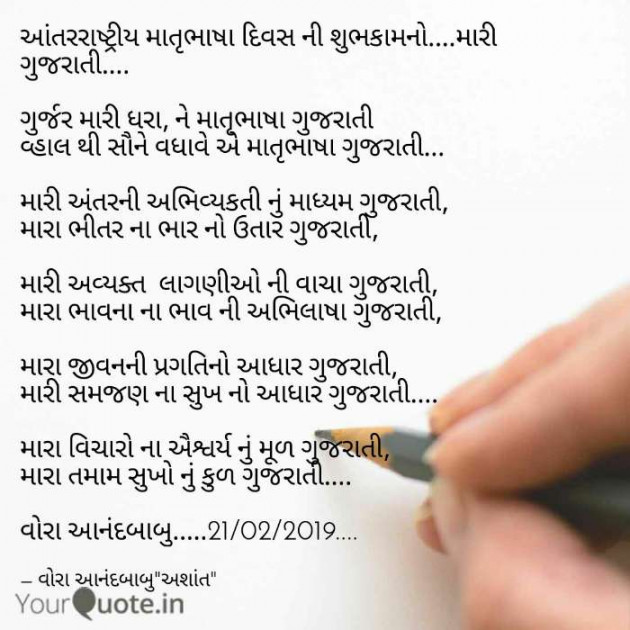 આંતરરાષ્ટ્રીય માતૃભાષા દિવસ ની શુભકામનો....મારી
ગુજરાતી....
ગુર્જર મારી ધરા, ને માતૃભાષા ગુજરાતી
વ્હાલ થી સૌને વધાવે એ માતૃભાષા ગુજરાતી...
મારી અંતરની અભિવ્યકતી નું માધ્યમ ગુજરાતી,
મારા ભીતર ના ભાર નો ઉતાર ગુજરાતી,
મારી અવ્યક્ત લાગણીઓ ની વાચા ગુજરાતી,
મારા ભાવના ના ભાવ ની અભિલાષા ગુજરાતી,
મારા જીવનની પ્રગતિનો આધાર ગુજરાતી,
મારી સમજણ ના સુખ નો આધાર ગુજરાતી....
મારા વિચારો ના ઐશ્વર્ય નું મૂળ ગુજરાતી,
મારા તમામ સુખો નું કુળ ગુજરાતી....
વોરા આનંદબાબુ.....21/02/2019....
– વોરા આનંદબાબુ"અશાંત"
YourQuote.in